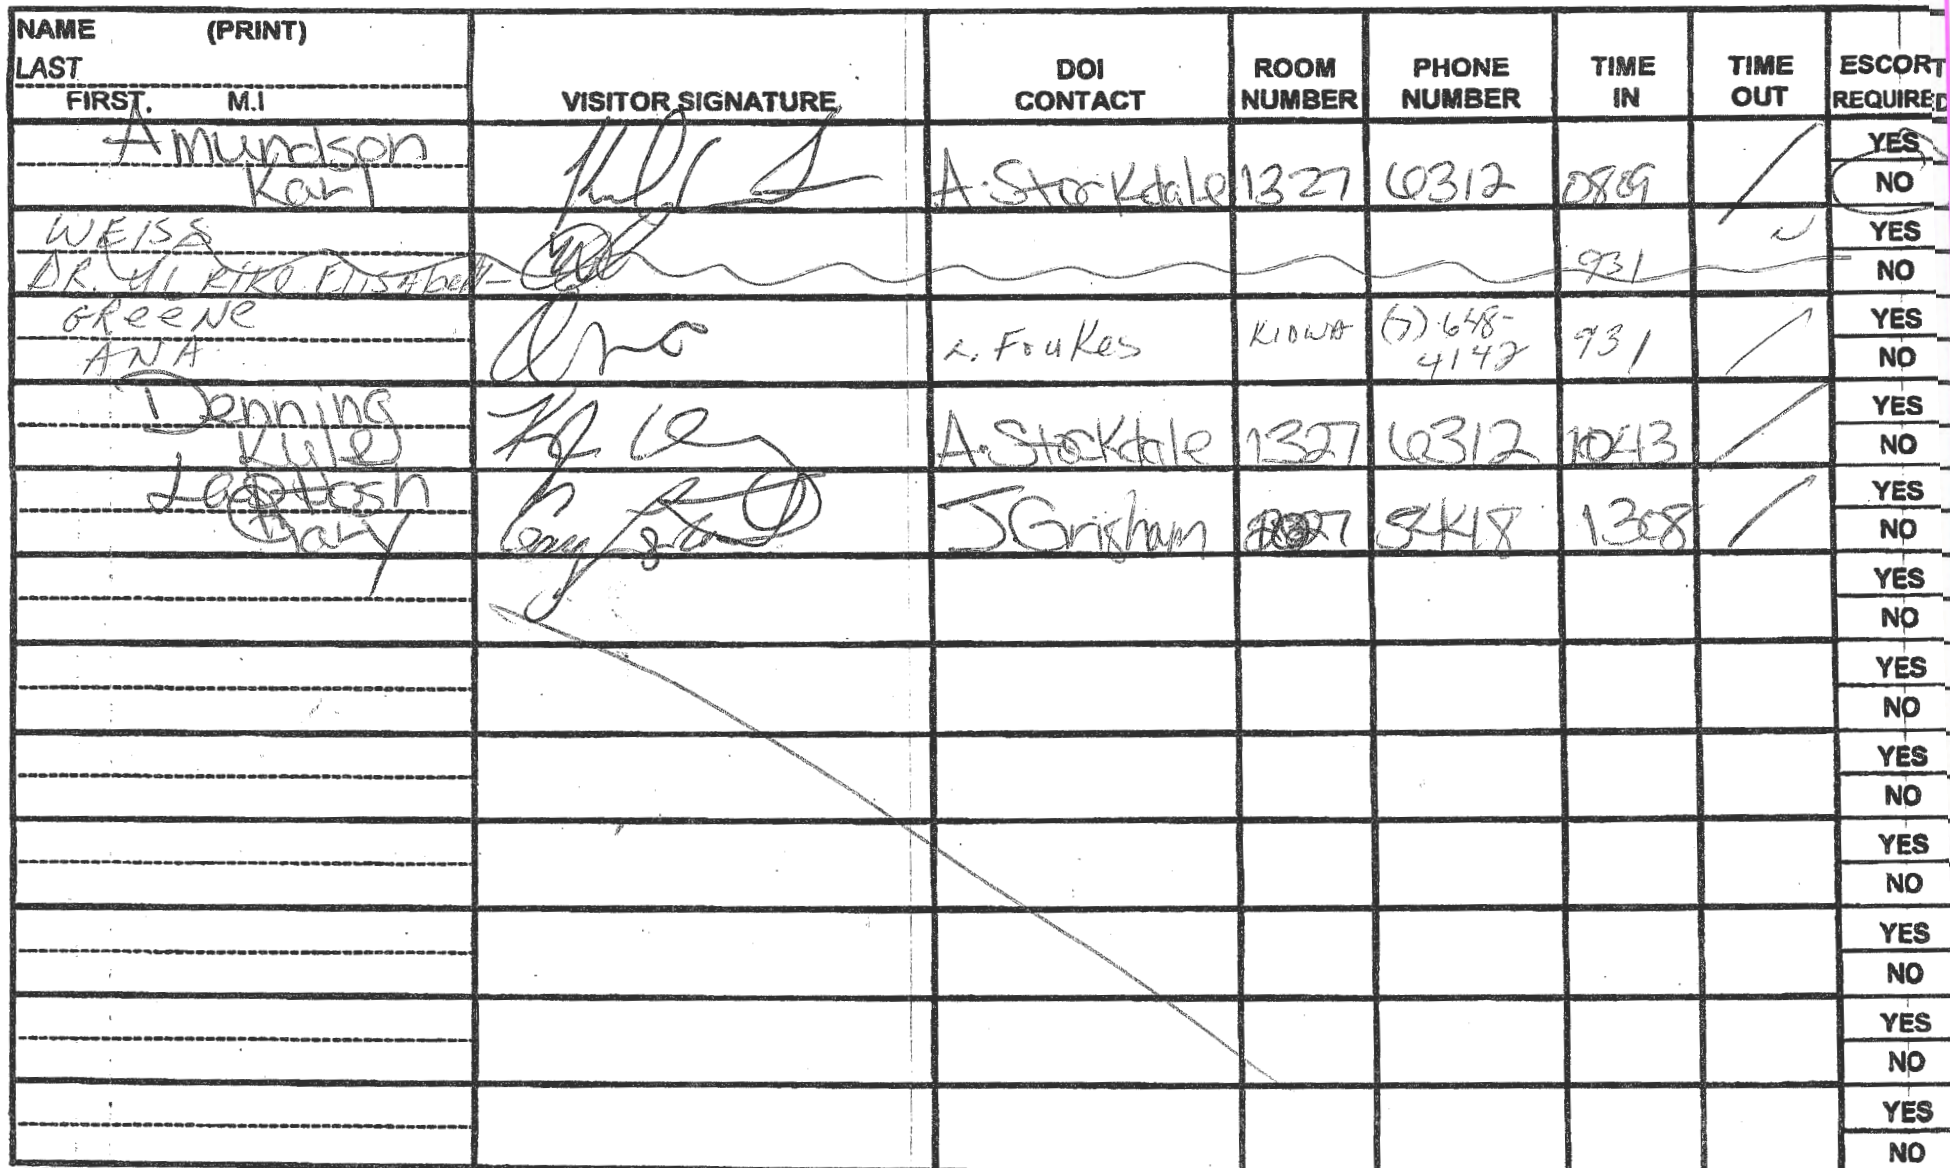 NAME (PRINT)
LAST
FIRST. M.I
VISITOR SIGNATURE
DOI CONTACT
ROOM NUMBER
PHONE NUMBER
TIME IN
TIME OUT
ESCORT REQUIRED
Amundson
Karl
A. Stockdale 1327 6312 0809
YES
NO
WEISS
DR. Elisabeth
931
YES
NO
GREENE
ANA
Foukes KIOWA (7) 648-4142 931
YES
NO
Denning
Kyle
A. Stockdale 1327 6312 1043
YES
NO
J Grisham 1308
YES
NO
YES
NO
YES
NO
YES
NO
YES
NO
YES
NO
YES
NO
YES
NO